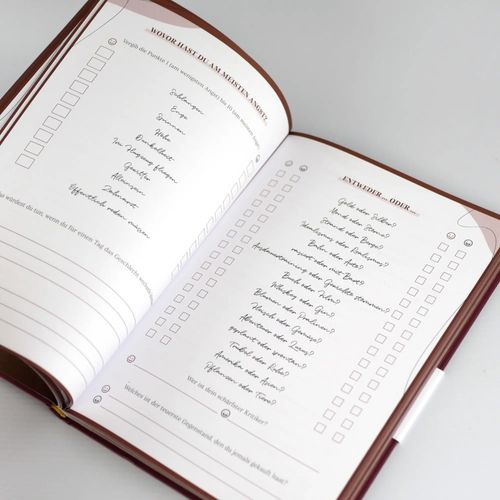 WOVOR HAST DU AM MEISTEN ANGST?
Vergib die Punkte 1 (am wenigsten Angst) bis 10 (am meisten Angst)
Schlangen
Enge
Spinnen
Höhe
Dunkelheit
Im Flugzeug fliegen
Gewitter
Alleinsein
Zahnarzt
Öffentlich reden müssen
würdest du tun, wenn du für einen Tag das Geschlecht
ENTWEDER ... ODER ...
Gold oder Silber?
Hund oder Katze?
Strand oder Berge?
Idealismus oder Realismus?
Bahn oder Auto?
rasiert oder mit Bart?
Buch oder Film?
Whiskey oder Gin?
Blumen oder Pralinen?
Fleisch oder Gemüse?
Abenteuer oder Luxus?
geplant oder spontan?
Trubel oder Ruhe?
Amerika oder Asien?
Pflanzen oder Tiere?
Wer ist dein schärfster Kritiker?
Welches ist der teuerste Gegenstand, den du jemals gekauft hast?